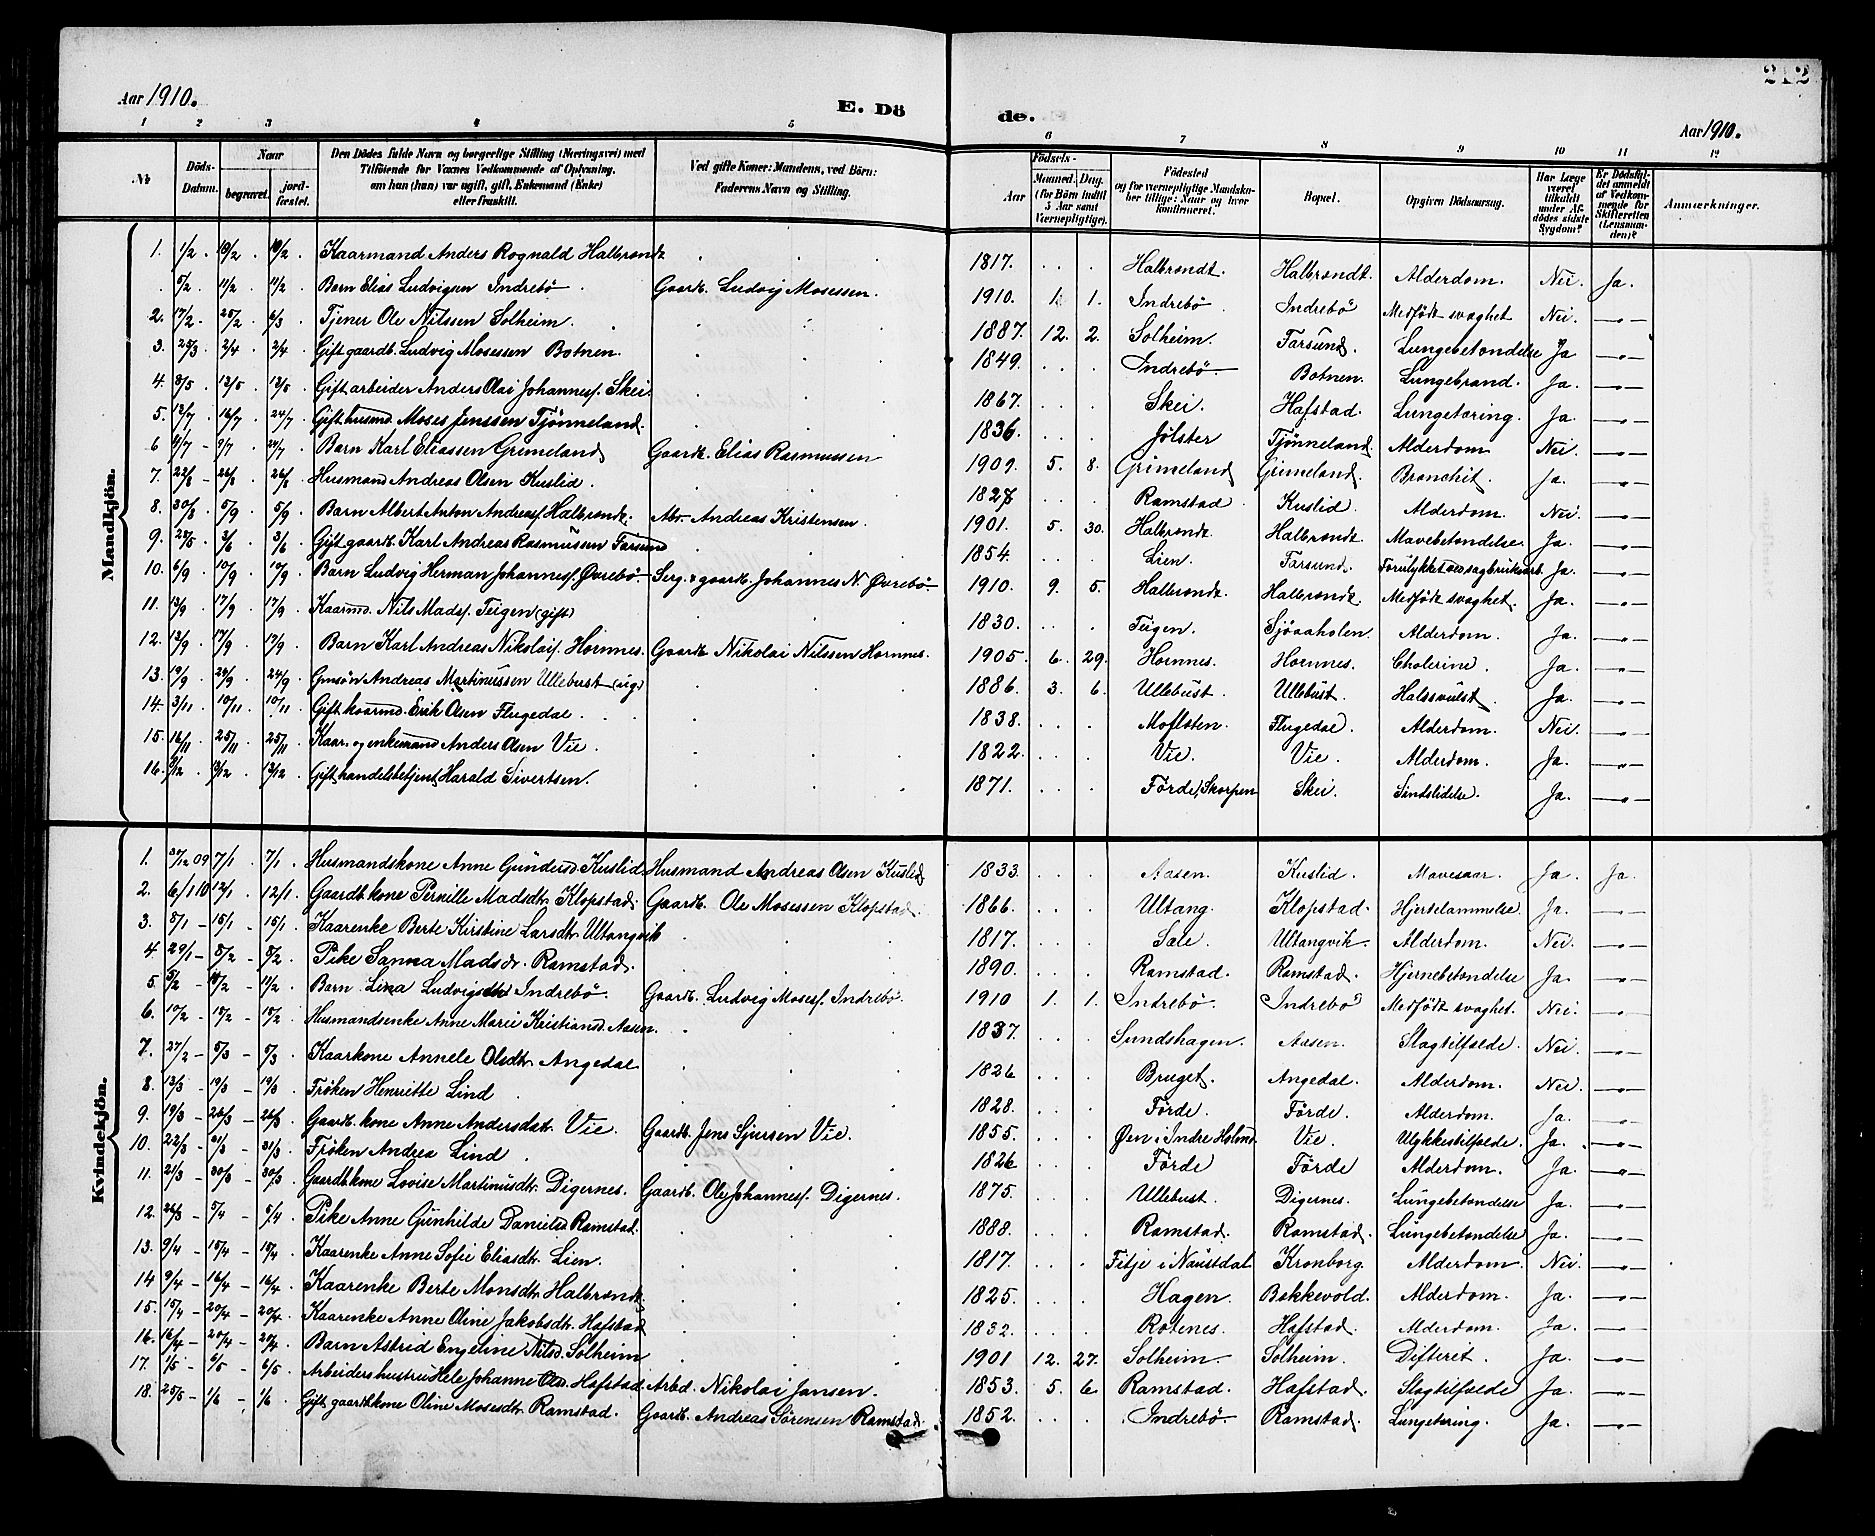 Aar 1910. E. Dö
de. Aar 1910. 212
1 2 3 4 5 6 7 8 9 10 11 12
№ Döds-Datum. Naar begravet. jordfæstet. Den Dödes fulde Navn og borgerlige Stilling (Næringsvei) med Tilföiende for Voxnes Vedkommende af Oplysning, om han (hun) var ugift, gift, Enkemand (Enke) eller fraskilt. Ved gifte Koner: Mandens, ved Börn: Faderens Navn og Stilling. Födsels- Aar Maaned. Dag. (for Börn indtil 5 Aar samt Værnepligtige). Födested og for værnepligtige Mandskaber tillige: Naar og hvor konfirmeret. Bopæl. Opgiven Dödsaarsag. Har Læge været tilkaldt under Afdödes sidste Sygdom? Er Dödsfaldet anmeldt af Vedkommende for Skifteretten (Lensmanden)? Anmærkninger.
Mandkjön.
1. 1/2 . 19/2 . 19/2 . Kaarmand Anders Rognald Halbrendt 1817. Halbrendt. Halbrendt. Alderdom. Nei. Ja.
5/2 . 11/2 . 11/2 . Barn Elias Ludvigsen Indrebö Gaardb. Ludvig Mosessen. 1910. 1. 1. Indrebö Indrebö Medfödt svaghet Nei. —"—
2. 17/2 . 25/2 . 6/3 . Tjener Ole Nilssen Solheim. 1887. 12. 2. Solheim. Farsund. Lungebetændelse Ja —"—
3. 25/3 2/4 . 2/4 . Gift gaardb. Ludvig Mosessen Botnen. 1849. Indrebö Botnen. Lungebrand. Ja. —"—
4. 8/5 . 13/5 . 13/5 . Gift arbeider Anders Olai Johannesf. Skei. 1867. Skei. Hafstad. Lungetæring. Ja. —"—
5. 12/7 . 16/7 . 24/7 . Gift husmd. Moses Jenssen Tjönneland. 1836. Jölster Tjönneland. Alderdom Nei. —"—
6 4/7 - 9/7 . 24/7 . Barn Karl Eliassen Grimeland Gaardb. Elias Rasmussen 1909. 5. 8. Grimeland Grimeland. Bronchit. Ja. —"—
7. 22/8 - 26/8 . 26/8 . Husmand Andreas Olsen Kuslid. 1827 Ramstad. Kuslid. Alderdom. Nei. —"—
8. 30/8 . 5/9 . 5/9 . Barn Albert Anton Andreasf. Halbrendt. Abr. Andreas Kristensen. 1901. 5. 30. Halbrendt. Halbrendt. Mavebetændelse. Ja. —"—
9. 28/5 . 3/6 . 3/6 . Gift gaardb. Karl Andreas Rasmussen Farsund 1854. Lien. Farsund. Forulykket ved sagbruksarb. Ja. —"—
10. 6/9 . 10/9 . 10/9 . Barn Ludvig Herman Johannesf. Øvrebö Serg. & gaardb. Johannes N. Øvrebö 1910. 9. 5. Halbrendt. Halbrendt. Medfödt svaghet. Ja. —"—
11. 13/9 . 17/9 . 17/9 . Kaarmd. Nils Madsf. Teigen (gift) 1830. Teigen. Sjöaaholen. Alderdom. Ja. —"—
12. 13/9 . 17/9 . 17/9 . Barn Karl Andreas Nikolaif. Hornnes. Gaardb. Nikolai Nilssen Hornnes. 1905. 6. 29. Hornnes. Hornnes. Cholerine. Ja. —"—
13. 19/9 . 24/9 . 24/9 . Gmsön Andreas Martinussen Ullebust (ug.) 1886. 3. 6. Ullebust. Ullebust. Halssvulst. Ja. —"—
14. 3/11 . 10/11 . 10/11 . Gift kaarmd. Erik Olsen Flugedal. 1838. Moflsten. Flugedal. Alderdom. Nei. —"—
15. 16/11 . 25/11 . 25/11 . Kaar- og enkemand Anders Olsen Vie. 1822. Vie. Vie. Alderdom. Ja. —"—
16. 8/12 . 13/12 . 13/12 . Gift handelsbetjent Harald Sivertsen. 1871. Förde, Skorpen Skei. Sindslidelse. Ja. —"—
Kvindekjön.
1. 31/12 09 7/1 . 7/1 . Husmandskone Anne Gundersd. Kuslid Husmand Andreas Olsen Kuslid 1833. Aasen. Kuslid. Mavesaar. Ja. Ja.
2. 6/1 10 12/1 . 12/1 . Gaardb. kone Pernille Madsdtr. Klopstad. Gaardb. Ole Mosessen Klopstad. 1866. Ultang. Klopstad. Hjertelammelse. Ja. —"—
3. 8/1 - 15/1 . 15/1 . Kaarenke Berte Kirstine Larsdtr. Ultangvik 1817. Sale. Ultangvik. Alderdom. Nei. —"—
4. 29/1 - 8/2 - 8/2 . Pike Sanna Madsdr. Ramstad. 1890. Ramstad. Ramstad. Hjernebetændelse Ja. —"—
5. 5/2 - 11/2 - 11/2 . Barn Lina Ludvigsdtr Indrebö. Gaardb. Ludvig Mosesf. Indrebö. 1910 1. 1. Indrebö. Indrebö Medfödt svaghet. Nei. —"—
6. 10/2 - 15/2 - 15/2 . Husmandsenke Anne Marie Kristiansd. Aasen. 1837. Sundshagen. Aasen. Slagtilfælde. Nei. —"—
7. 27/2 - 5/3 - 5/3 . Kaarkone Annele Olsdtr. Angedal 1826 Bruget. Angedal. Alderdom. Nei. —"—
8. 13/3 - 19/3 - 19/3 . Fröken Henriette Lind 1828. Förde. Förde. Alderdom. Ja. —"—
9. 19/3 - 26/3 - 26/3 . Gaardb. kone Anne Andersdtr. Vie. Gaardb. Jens Sjursen Vie. 1855. Øen i Indre Holmd. Vie. Ulykkestilfælde. Ja. —"—
10. 22/3 - 31/3 - 31/3 . Fröken Andrea Lind 1826 Förde Förde Alderdom. Ja. —"—
11. 21/3 - 30/3 - 30/3 . Gaardb. kone Lovise Martinusdtr. Digernes. Gaardb. Ole Johannesf. Digernes. 1875. Ullebust. Digernes. Lungebetændelse Ja. —"—
12. 26/3 - 5/4 - 5/4 . Pike Anne Gunhilde Danielsd. Ramstad. 1888. Ramstad. Ramstad. Lungebetændelse Ja. —"—
13. 9/4 - 15/4 - 15/4 . Kaarenke Anne Sofie Eliasdtr. Lien. 1817. Fitje i Naustdal Kronborg. Alderdom. Nei. —"—
14 9/4 - 16/4 - 16/4 . Kaarenke Berte Monsdtr. Halbrendt. 1825. Hagen. Bekkevold. Alderdom. Ja. —"—
15. 15/4 - 20/4 - 20/4 . Kaarenke Anne Oline Jakobsdtr. Hafstad 1832. Rotenes. Hafstad. Alderdom. Ja. —"—
16. 16/4 - 20/4 - 20/4 . Barn Astrid Engeline Nilsd. Solheim 1901 12. 27. Solheim. Solheim. Difteret. Ja. —"—
17. 1/5 - 6/5 - 6/5 . Arbeiders hustru Hele Johanne Olsd. Hafstad. Arbd. Nikolai Jansen. 1853. 5. 6. Ramstad. Hafstad. Slagtilfælde Ja. —"—
18. 25/5 - 1/6 - 1/6 . Gift gaardb.kone Oline Mosesdtr. Ramstad. Gaardb. Andreas Sörensen Ramstad. 1852. Indrebö Ramstad. Lungetæring. Ja. —"—